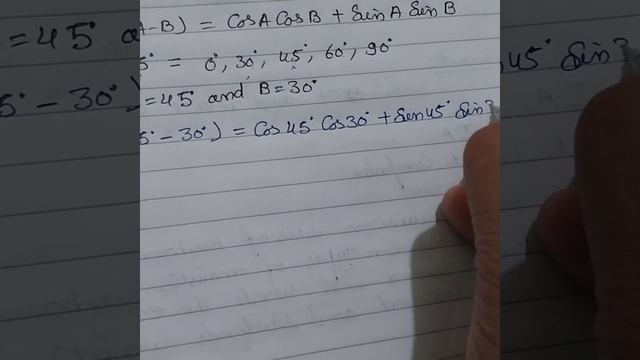 A-B) = Cos A Cos B + Sin A Sin B
5° = 0°, 30°, 45°, 60°, 90°
=45° and B=30°
5°-30°) = Cos 45° Cos 30° + Sin 45° Sin 3